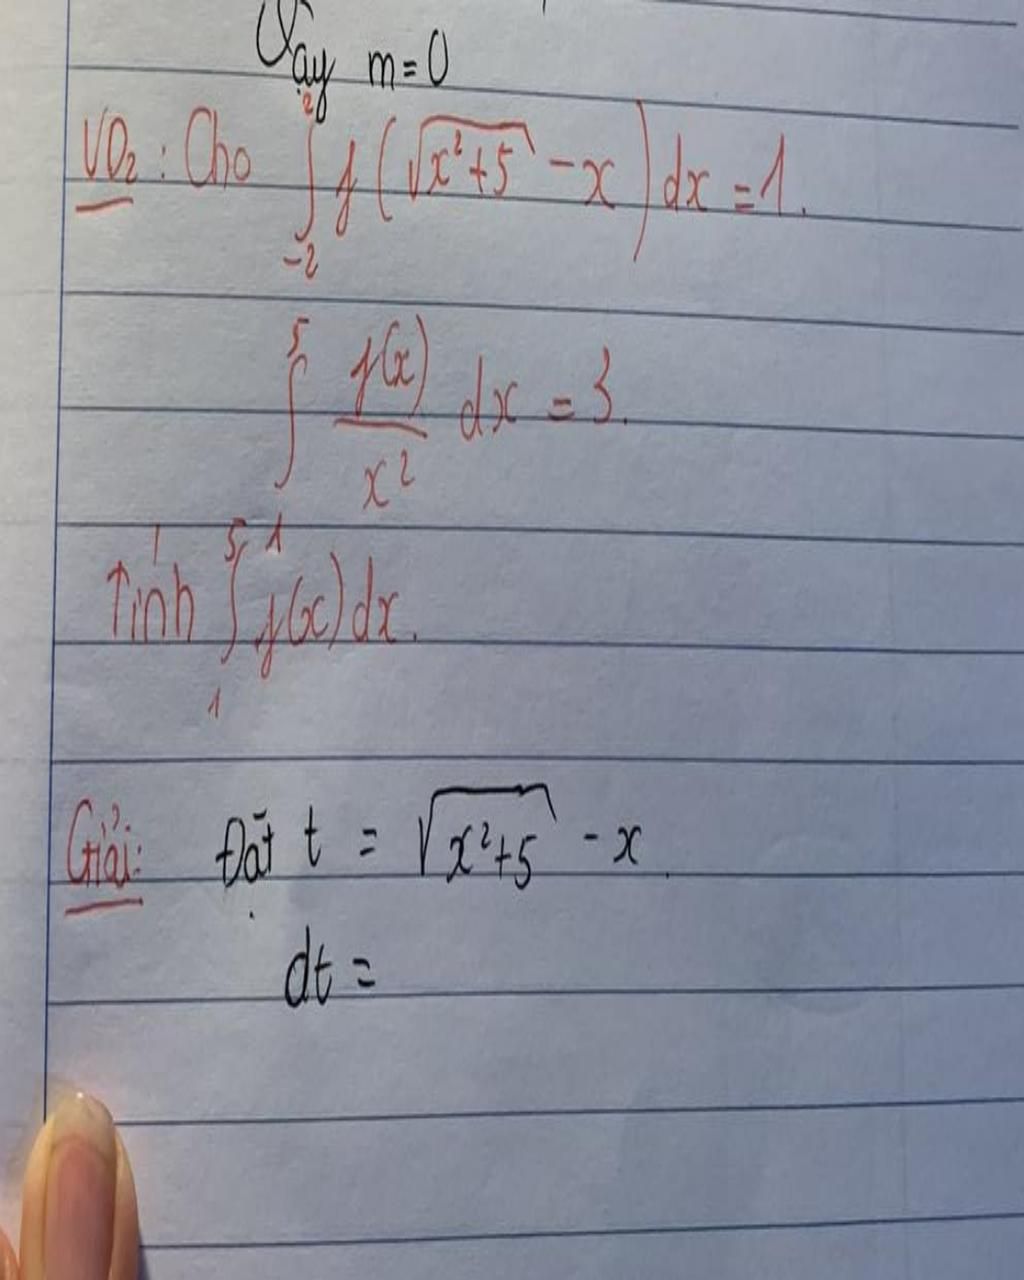 Vậy m=0
VD₂: Cho ∫₋₂² f(√(x²+5) - x) dx = 1.
∫₁⁵ f(x)/x² dx = 3.
Tính ∫₁⁵ f(x) dx.
Giải: Đặt t = √(x²+5) - x.
dt =